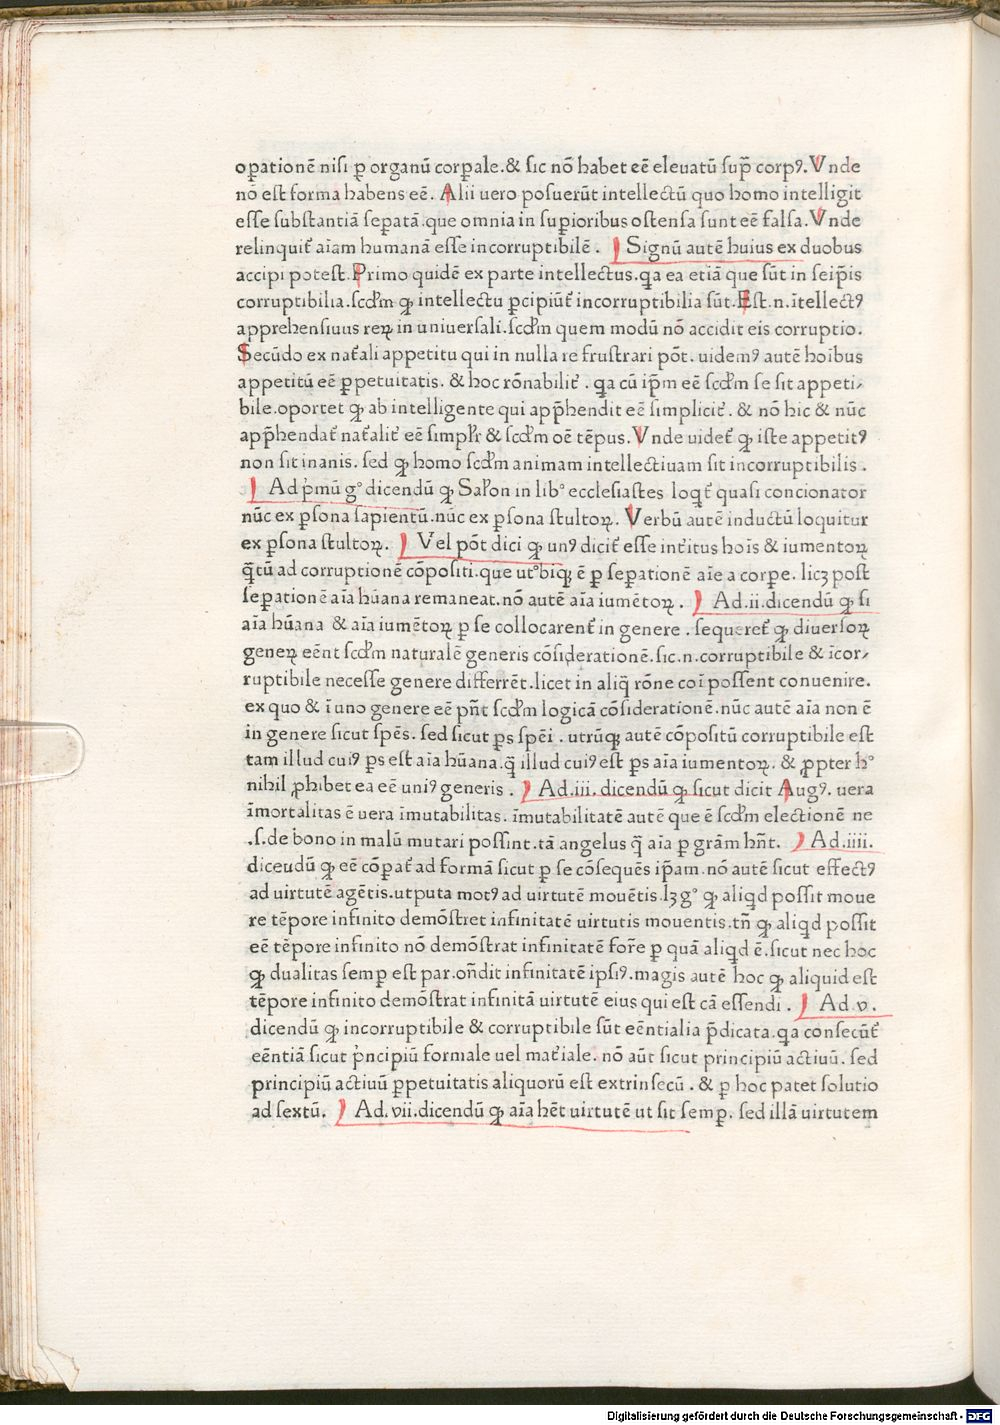 oꝑationē nisi ꝑ organū corꝑale.& sic nō habet eē eleuatū sup̄ corpꝰ.Vnde
nō est forma habens eē. Alii uero posuerūt intellectū quo homo intelligit
esse substantiā seꝑatā.que omnia in suꝑioribus ostensa sunt eē falsa.Vnde
relinquit᷑ aīam humanā esse incorruptibilē . Signū autē huius ex duobus
accipi potest.Primo quidē ex parte intellectus.qa ea etiā que sūt in seip̄is
corruptibilia.scd̄m ꝙ intellectu ꝑcipiūt᷑ incorruptibilia sūt.Est.n.ītellectꝰ
apprehensiuus reꝝ in uniuersali.scd̄m quem modū nō accidit eis corruptio.
Secūdo ex nat᷑ali appetitu qui in nulla re frustrari pōt. uidemꝰ autē hoibus
appetitū eē ꝑpetuitatis. & hoc rōnabilit᷑ . qa cū ip̄m eē scd̄m se sit appeti⸗
bile.oportet ꝙ ab intelligente qui app̄hendit eē simplicit᷑. & nō hic & nūc
app̄hendat᷑ nat᷑alit᷑ eē simplr̄ & scd̄m oē tēpus.Vnde uidet᷑ ꝙ iste appetitꝰ
non sit inanis. sed ꝙ homo scd̄m animam intellectiuam sit incorruptibilis .
Ad p̍mū gº dicendū ꝙ Salōon in libº ecclesiastes loqt᷑ quasi concionator
nūc ex ꝑsona sapientū.nūc ex ꝑsona stultoꝝ. Verbū autē inductū loquitur
ex ꝑsona stultoꝝ. Vel pōt dici ꝙ unꝰ dicit᷑ esse int᷑itus hoīs & iumentoꝝ
q̄tū ad corruptionē cōpositi.que utºbiqꝫ ē ꝑ seꝑationē aīe a corpe. licꝫ post
seꝑationē aīa hūana remaneat.nō autē aīa iumētoꝝ . Ad.ii.dicendū ꝙ si
aīa hūana & aīa iumētoꝝ ꝑ se collocarent᷑ in genere . sequeret᷑ ꝙ diuersoꝝ
geneꝝ eēnt scd̄m naturalē generis cōsiderationē.sic.n.corruptibile & īcor⸗
ruptibile necesse genere differrēt.licet in aliq̄ rōne coī possent conuenire.
ex quo & ī uno genere eē pn̄t scd̄m logicā cōsiderationē.nūc autē aīa non ē
in genere sicut spēs. sed sicut ꝑs spēi . utrūqꝫ autē cōpositū corruptibile est
tam illud cuiꝰ ꝑs est aīa hūana.q̄ illud cuiꝰ est ꝑs aīa iumentoꝝ. & ꝓpter hº
nihil ꝓhibet ea eē uniꝰ generis . Ad.iii. dicendū ꝙ sicut dicit Augꝰ. uera
īmortalitas ē uera īmutabilitas. īmutabilitatē autē que ē scd̄m electionē ne
.s.de bono in malū mutari possint.tā angelus q̄ aīa ꝑ grām hn̄t. Ad.iiii.
diceudū ꝙ eē cōpat᷑ ad formā sicut ꝑ se cōsequēs ip̄am.nō autē sicut effectꝰ
ad uirtutē agētis.utputa motꝰ ad uirtutē mouētis.lꝫ gº ꝙ aliqd possit moue
re tēpore infinito demōstret infinitatē uirtutis mouentis.tn̄ ꝙ aliqd possit
eē tēpore infinito nō demōstrat infinitatē for̄e ꝑ quā aliqd ē.sicut nec hoc
ꝙ dualitas semꝑ est par.on̄dit infinitatē ipsiꝰ.magis autē hoc ꝙ aliquid est
tēpore infinito demōstrat infinitā uirtutē eius qui est cā essendi . Ad.v.
dicendū ꝙ incorruptibile & corruptibile sūt eēntialia p̄dicata.qa consecūt᷑
eēntiā sicut p̍ncipiū formale uel mat᷑iale. nō aūt sicut principiū actiuū. sed
principiū actiuū ꝑpetuitatis aliquorū est extrinsecū . & ꝑ hoc patet solutio
ad sextū. Ad. vii.dicendū ꝙ aīa hēt uirtutē ut sit semꝑ. sed illā uirtutem
Digitalisierung gefördert durch die Deutsche Forschungsgemeinschaft - DFG